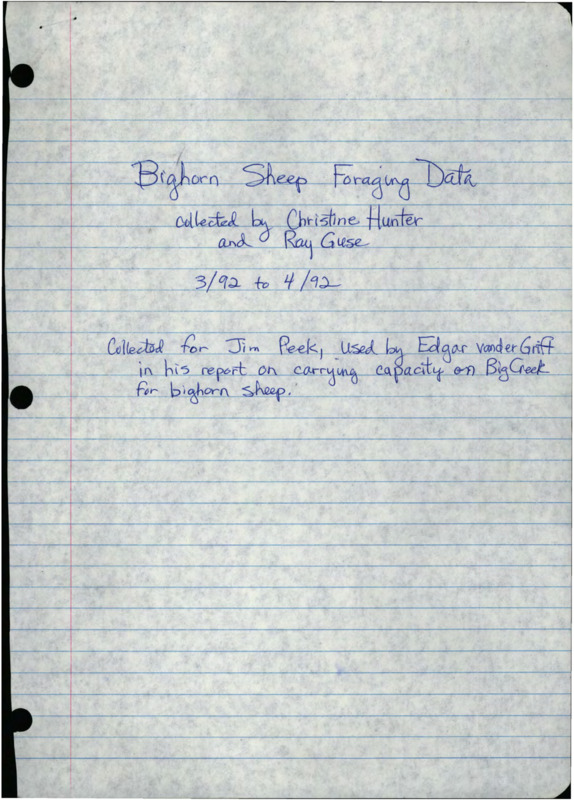 Bighorn Sheep Foraging Data
collected by Christine Hunter
and Ray Guse
3/92 to 4/92
Collected for Jim Peek, used by Edgar vander Griff
in his report on carrying capacity on Big Creek
for bighorn sheep.